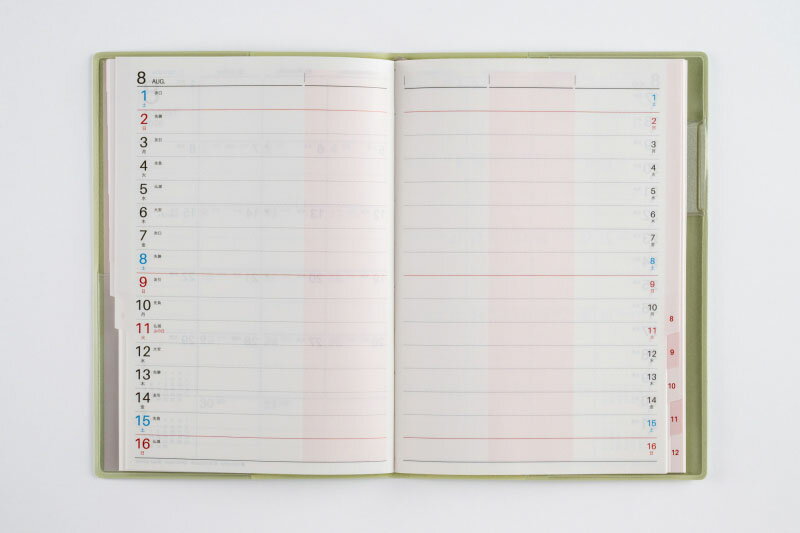 8 AUG.
1 赤口
土
2 先勝
日
3 友引
月
4 先負
火
5 仏滅
水
6 大安
木
7 赤口
金
8 先勝
土
9 友引
日
10 先負
月
11 仏滅
火 山の日
12 大安
水
13 先勝
木
14 友引
金
15 先負
土
16 仏滅
日
1
土
2
日
3
月
4
火
5
水
6
木
7
金
8
土
9
日
10
月
11
火
12
水
13
木
14
金
15
土
16
日
8
9
10
11
12